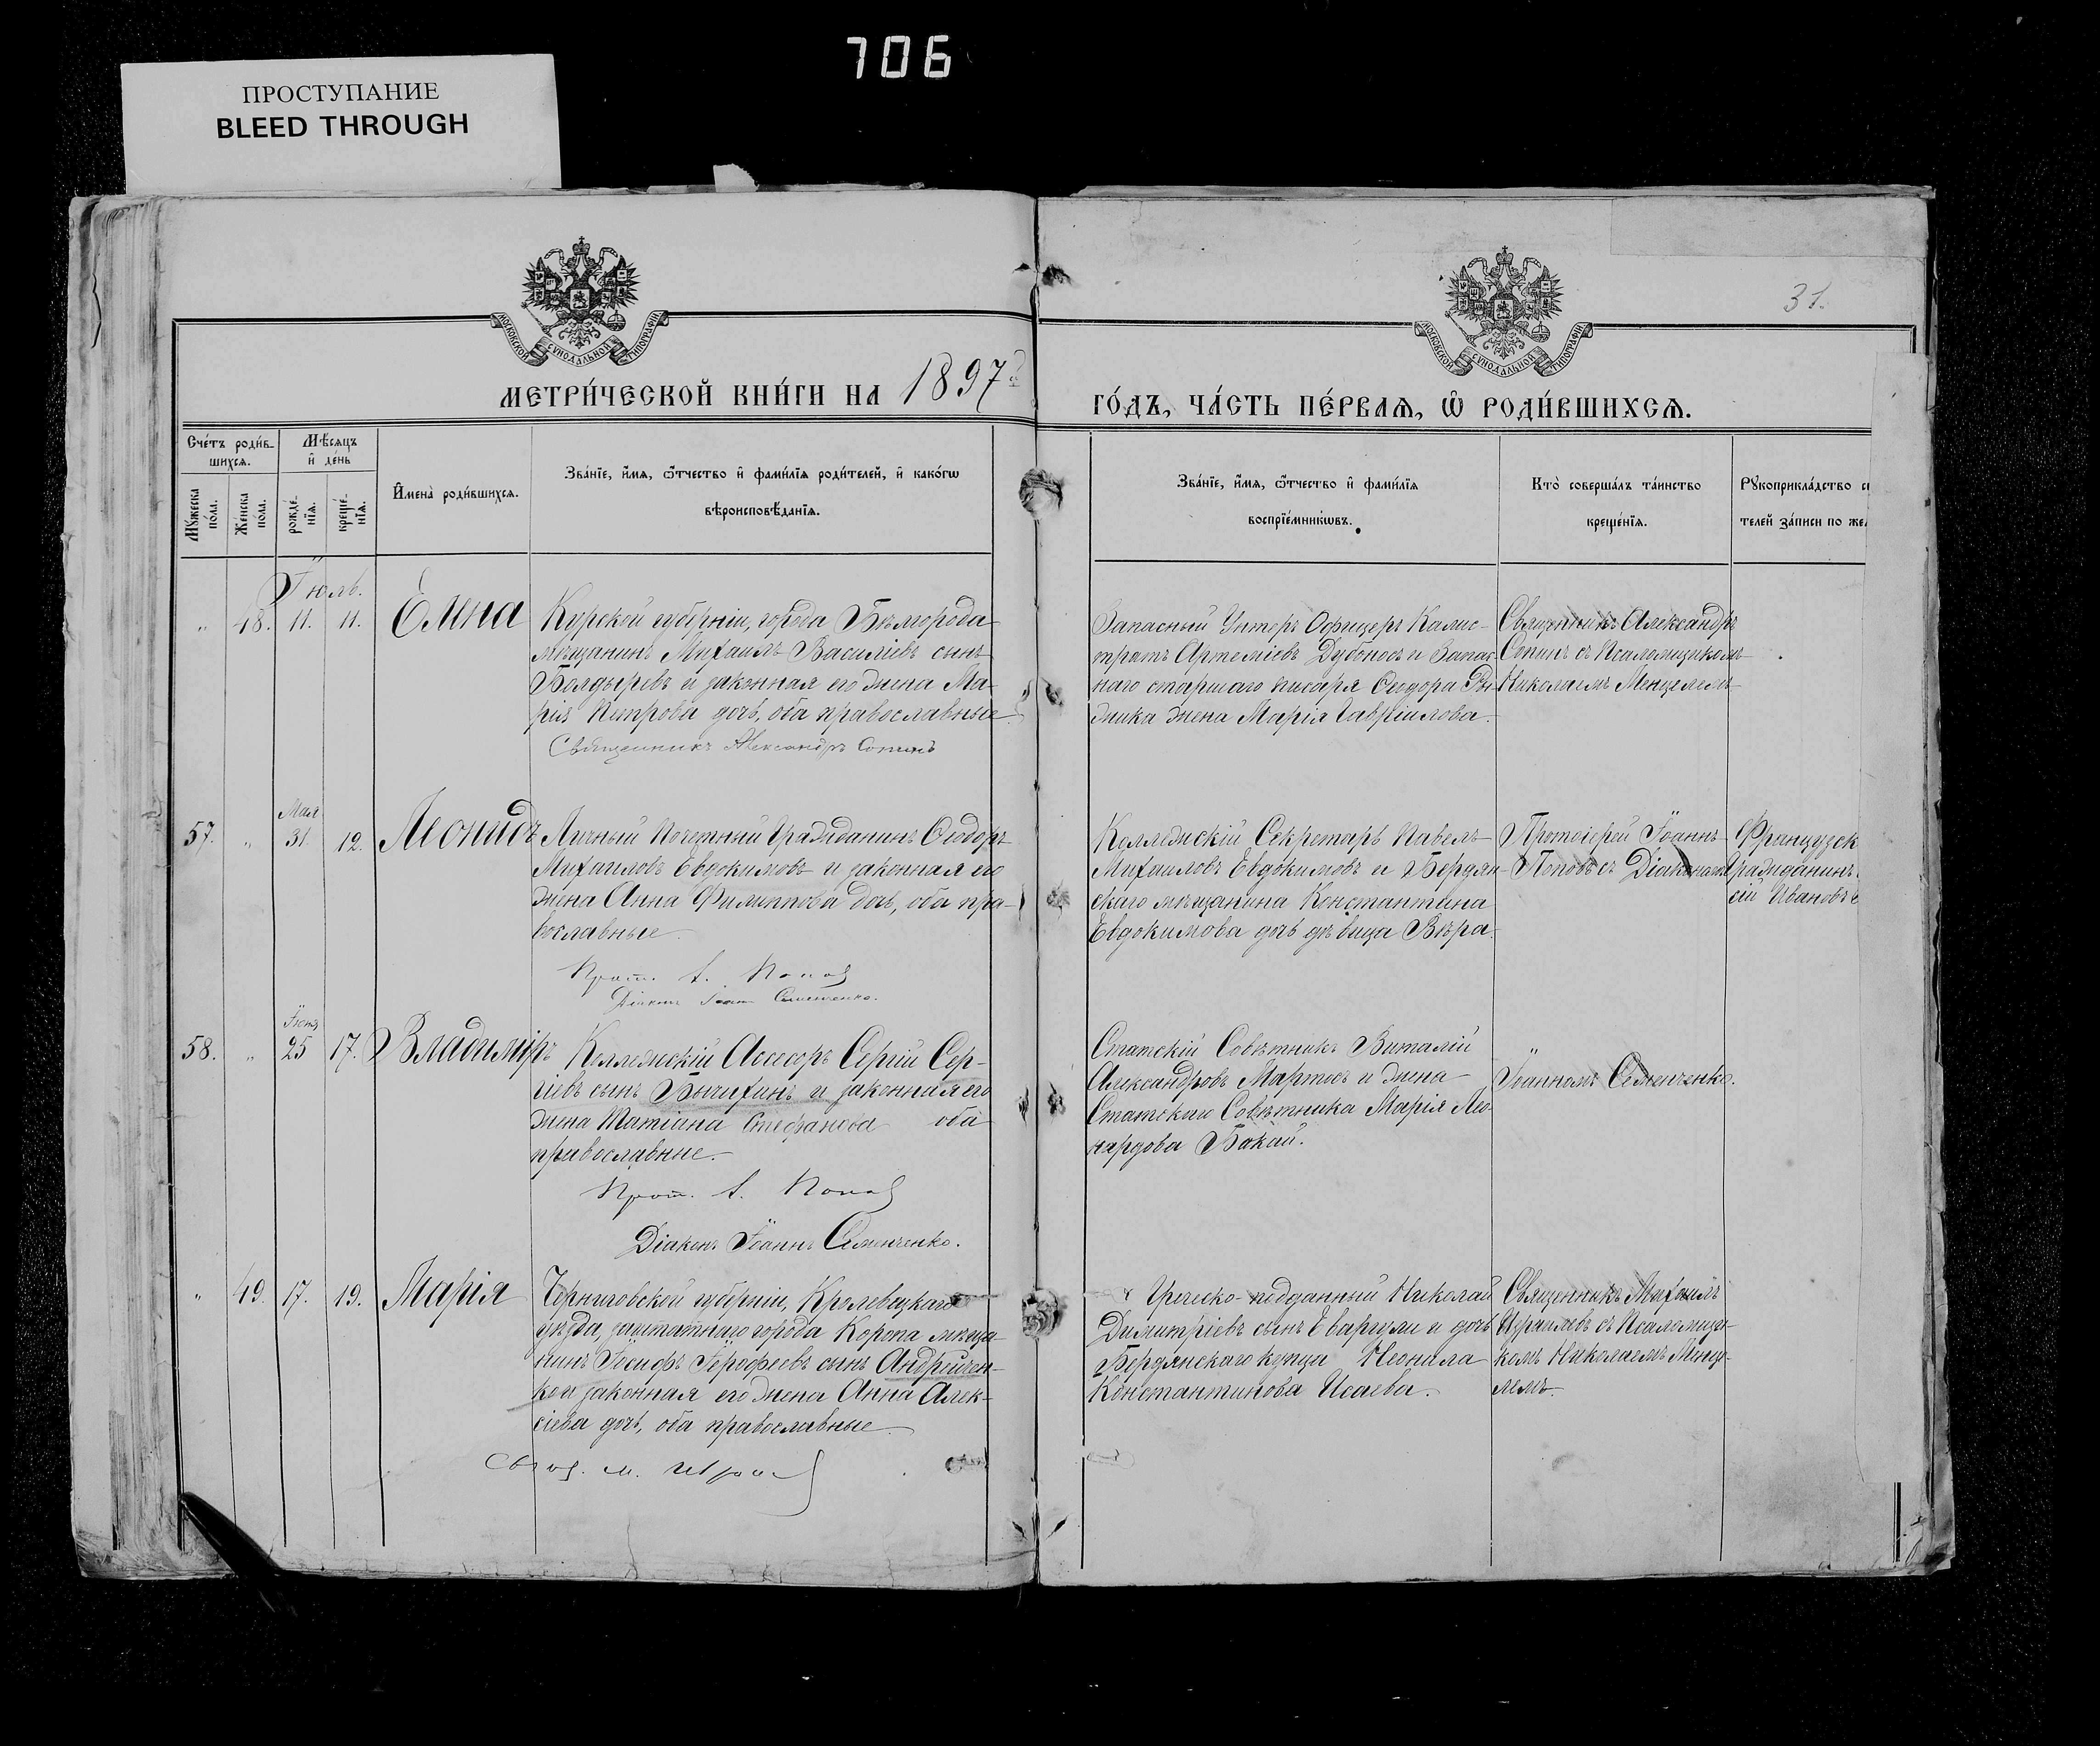 706
ПРОСТУПАНИЕ
BLEED THROUGH
МОСКОВСКОЙ СѴНОДАЛЬНОЙ ТИПОГРАФІИ
МОСКОВСКОЙ СѴНОДАЛЬНОЙ ТИПОГРАФІИ
31.
МЕТРИ́ЧЕСКОЙ КНИ́ГИ НА 1897й
ГО́ДЪ, ЧА́СТЬ ПЕ́РВАЯ, Ѽ РОДИ́ВШИХСЯ.
Сче́тъ роди́в-
шихся.
Мѣ́сяцъ
и҆ де́нь
Мꙋ́жеска
по́ла.
Же́нска
по́ла.
рожде́-
нїя.
креще́-
нїя.
И҆мена̀ роди́вшихся.
Зва́нїе, и҆́мя, ѻ҆́тчество и҆ фами́лїя роди́телей, и҆ како́гѡ
вѣроисповѣ́данїя.
Зва́нїе, и҆́мя, ѻ҆́тчество и҆ фами́лїя
воспрїе́мникѡвъ.
Кто̀ соверша́лъ та́инство
креще́нїя.
Рꙋкоприкла́дство
телей за́писи по
Іюль.
" 48. 11. 11. Елена
Курской губерніи, города Бѣлгорода
мѣщанинъ Михаилъ Василіевъ сынъ
Болдыревъ и законная его жена Ма-
рія Петрова дочь, оба православные
Священникъ Александръ Сопинъ
Запасный Унтеръ Офицеръ Калис-
тратъ Артеміевъ Дубоносъ и Запас-
наго старшаго писаря Ѳеодора
жика жена Марія Гавріилова.
Священникъ Александръ
Сопинъ съ Псаломщикомъ
Николаемъ Менцелемъ
Мая
57. " 31. 12. Леонидъ
Личный Почетный Гражданинъ Ѳеодоръ
Михаиловъ Евдокимовъ и законная его
жена Анна Филиппова дочь, оба пра-
вославные
Прот. І. Поповъ
Діаконъ Іоаннъ Семенченко.
Коллежскій Секретарь Павелъ
Михаиловъ Евдокимовъ и Бердян-
скаго мѣщанина Константина
Евдокимова дочь дѣвица Вѣра.
Протоіерей Іоаннъ
Поповъ съ Діакономъ
Французск
Гражданинъ
сій Ивановъ
Іюня
58. " 25 17. Владиміръ
Коллежскій Ассесоръ Сергій Сер-
гіевъ сынъ Бычихинъ и законная его
жена Татіана Стефанова оба
православные.
Прот. І. Поповъ
Діаконъ Іоаннъ Семенченко.
Статскій Совѣтникъ Виталій
Александровъ Мартосъ и жена
Статскаго Совѣтника Марія Лео-
нардова Бакай.
Іоанномъ Семенченко.
" 49. 17. 19. Марія
Черниговской губерніи, Кролевецкаго
уѣзда, заштатнаго города Коропа мѣща-
нинъ Іосифъ Іерофеевъ сынъ Андрейчен-
ко и законная его жена Анна Алек-
сіева дочь, оба православные
Свящ. М.
Греческо-подданный Николай
Димитріевъ сынъ Евангули и дочь
Бердянскаго купца Неонила
Константинова Исаева.
Священникъ Михаилъ
Израилевъ съ Псаломщи-
комъ Николаемъ Менце-
лемъ.